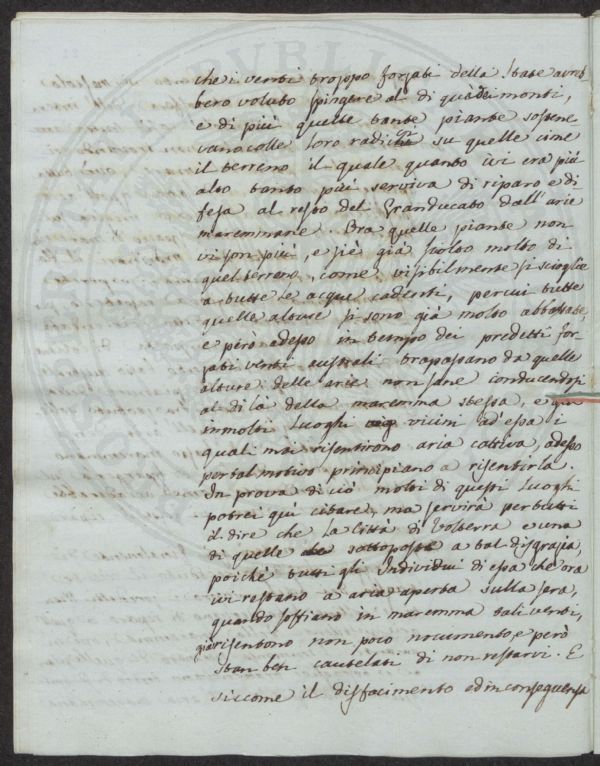 che i venti troppo forzati della state avreb
bero voluto spingere al di quà dei monti,
e di più quelle tante piante sostene
vano colle loro radichi su quelle cime
il terreno il quale quanto ivi era più
alto tanto più serviva di riparo e di
fesa al resto del Granducato dall'arie
maremmane. Ora quelle piante non
vi son più, e si è già sciolto molto di
quel terreno, come visibilmente si scioglie
a tutte le acque cadenti, per cui tutte
quelle alture si sono già molto abbassate,
e però adesso in tempo dei predetti for
zati venti australi trapassano da quelle
alture delle arie non sane conducendosi
al di là della maremma stessa, e
in molti luoghi vicini ad essa i
quali mai risentirono aria cattiva, adesso
per tal motivo principiano a risentirla.
In prova di ciò molti di questi luoghi
potrei quì citare, ma servirà per tutti
il dire che la Città di Volterra e una
di quelle sottoposte a tal disgrazia,
poiché tutti gli Individui di essa che ora
ivi restano a aria aperta sulla sera,
quando soffiano in maremma tali venti,
già risentono non poco nocumento e però
stan ben cautelati di non restarvi. E
siccome il disfacimento ed in conseguenza